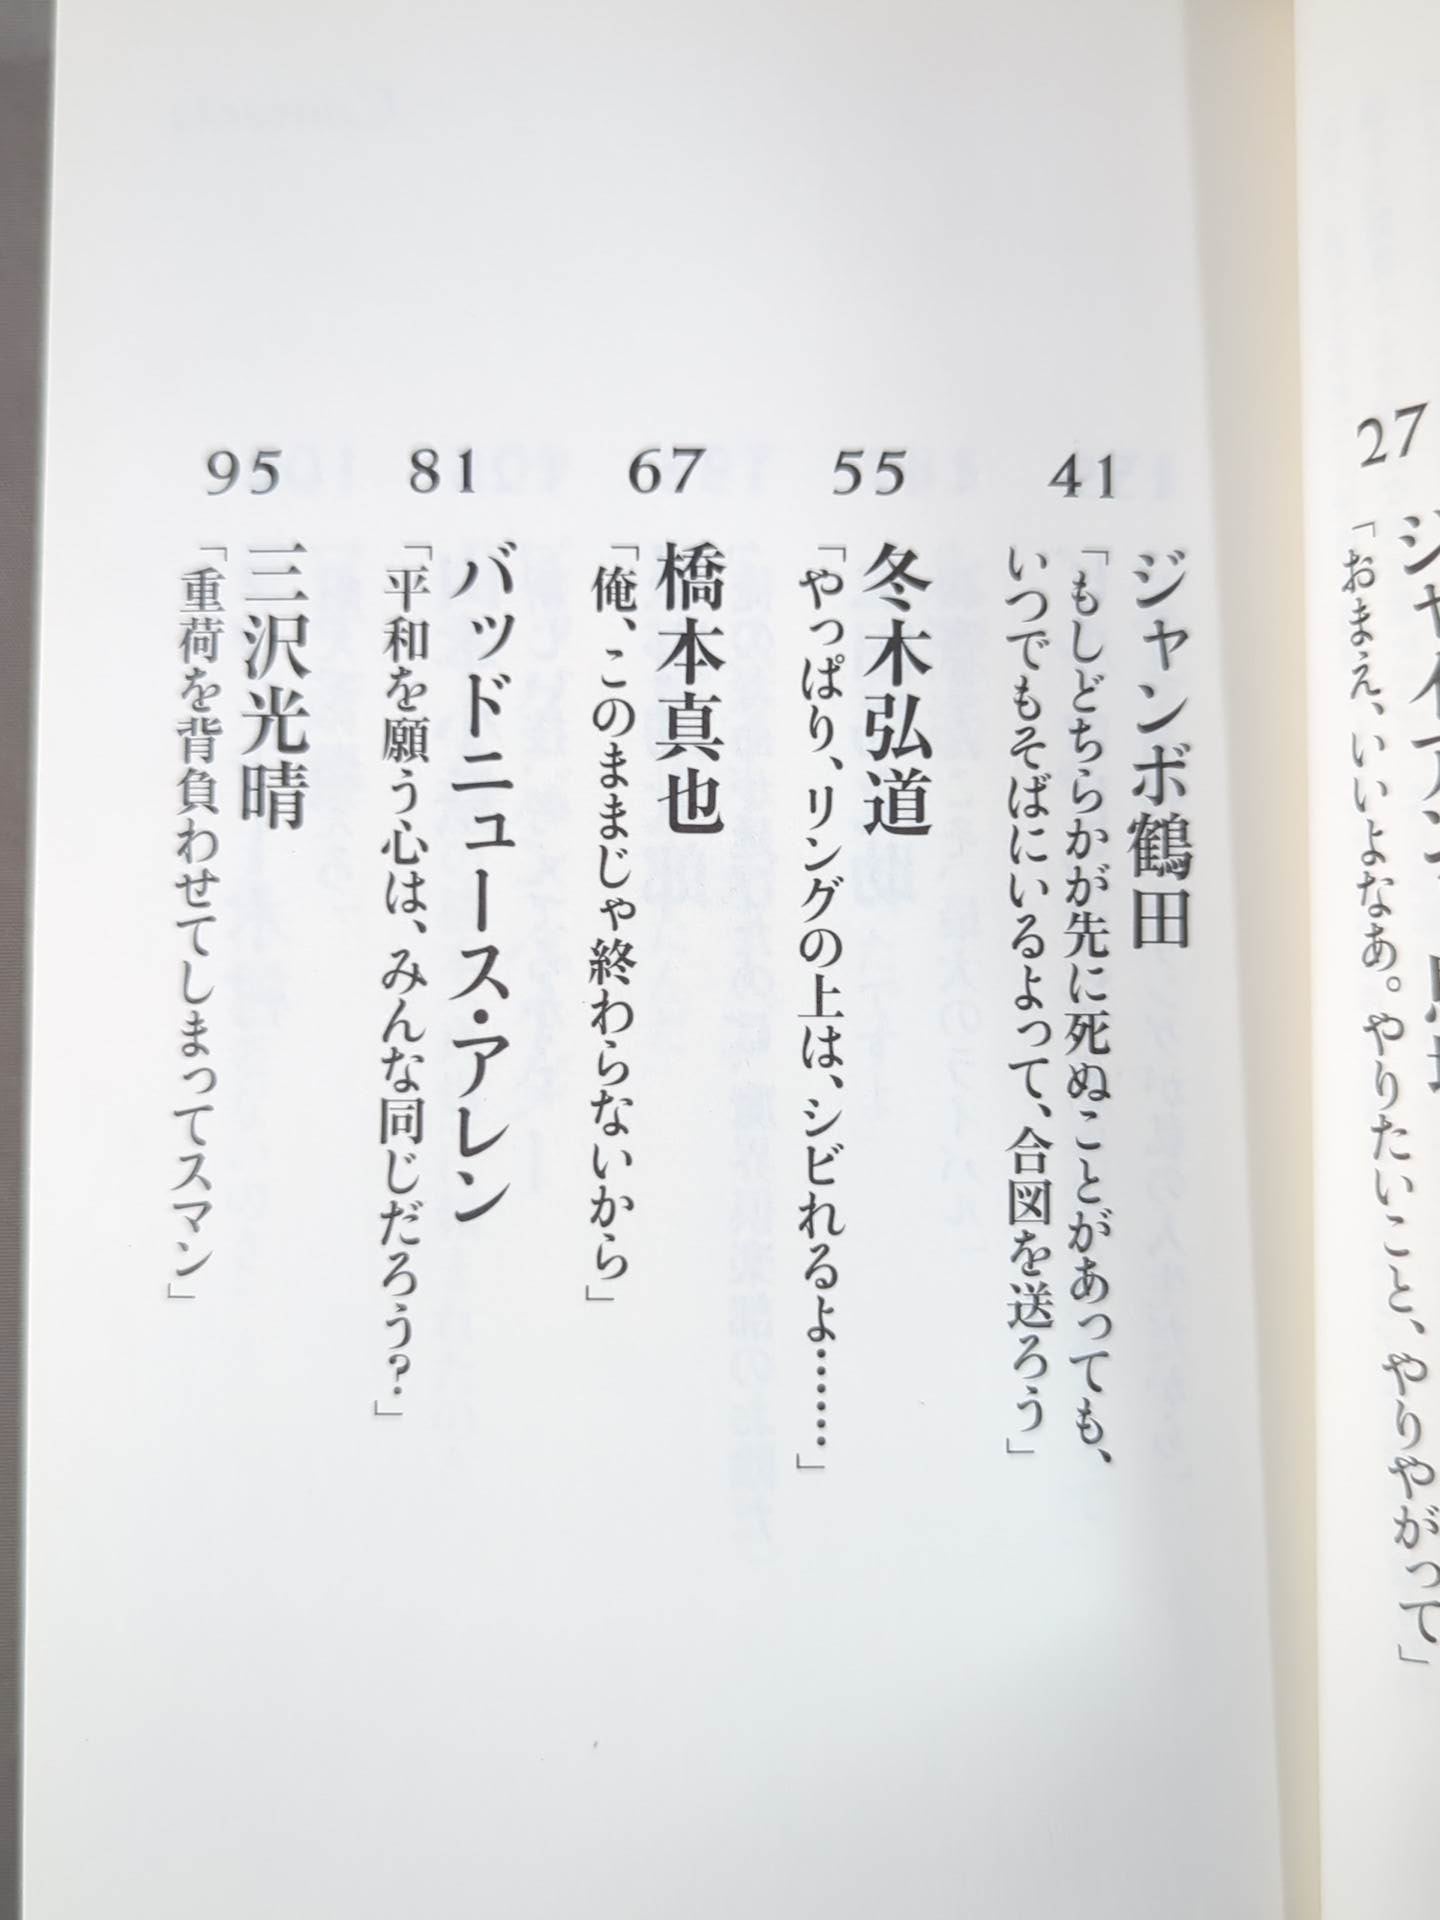 27
「おまえ、いいよなあ。やりたいこと、やりやがって」
41
ジャンボ鶴田
「もしどちらかが先に死ぬことがあっても、
いつでもそばにいるよって、合図を送ろう」
55
冬木弘道
「やっぱり、リングの上は、シビれるよ……」
67
橋本真也
「俺、このままじゃ終わらないから」
81
バッドニュース・アレン
「平和を願う心は、みんな同じだろう?」
95
三沢光晴
「重荷を背負わせてしまってスマン」